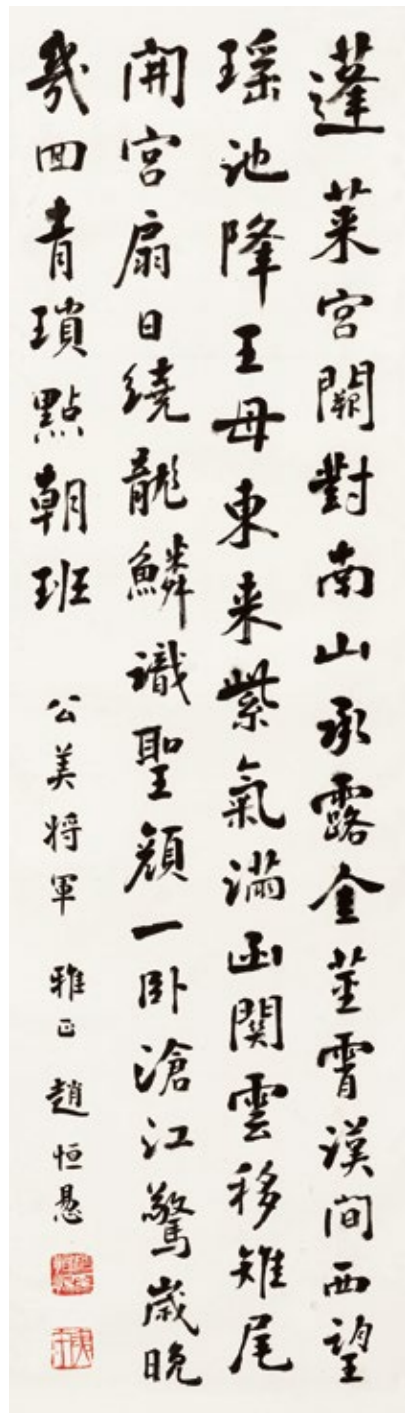 蓬萊宮闕對南山承露金莖霄漢間西望
瑤池降王母東来紫氣滿函關雲移雉尾
開宮扇日繞龍鱗識聖顏一卧滄江驚歲晚
幾回青瑣點朝班 公美将軍 雅正 趙恒惖